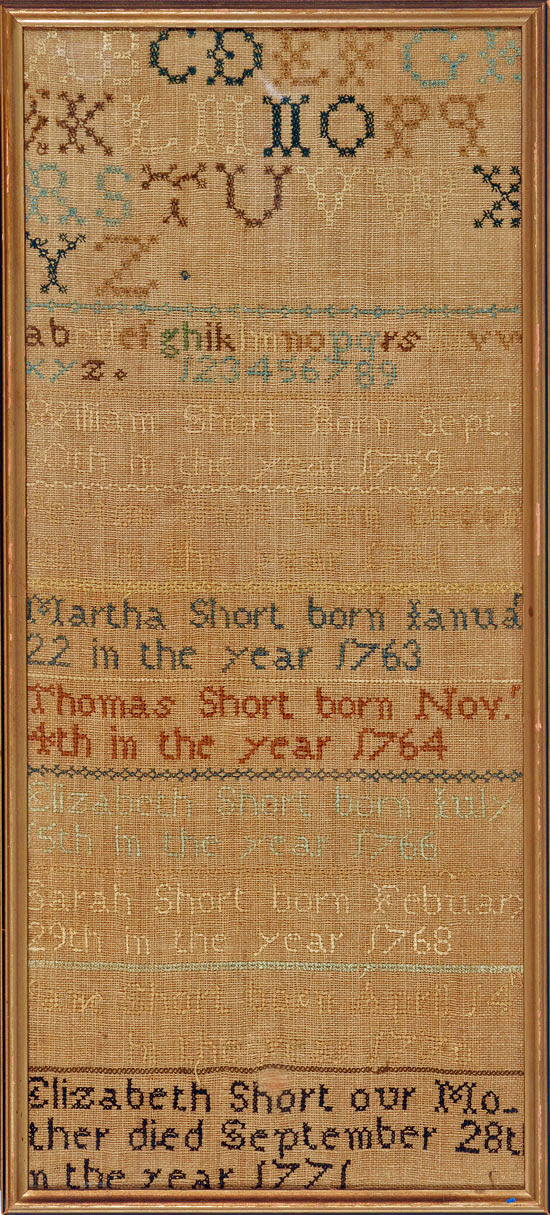 A B C D E F G H
K L M N O P Q
R S T U V W X
Y Z
a b c d e f g h i k l m n o p q r s t u v w
x y z. 1 2 3 4 5 6 7 8 9
William Short Born Sept.r
10th in the year 1759
Short born
in the year
Martha Short born Ianua
22 in the year 1763
Thomas Short born Nov.r
4th in the year 1764
Elizabeth Short born Iuly
5th in the year 1766
Sarah Short born Febuary
29th in the year 1768
Jane Short born April 14
in the year
Elizabeth Short our Mo-
ther died September 28th
in the year 1771